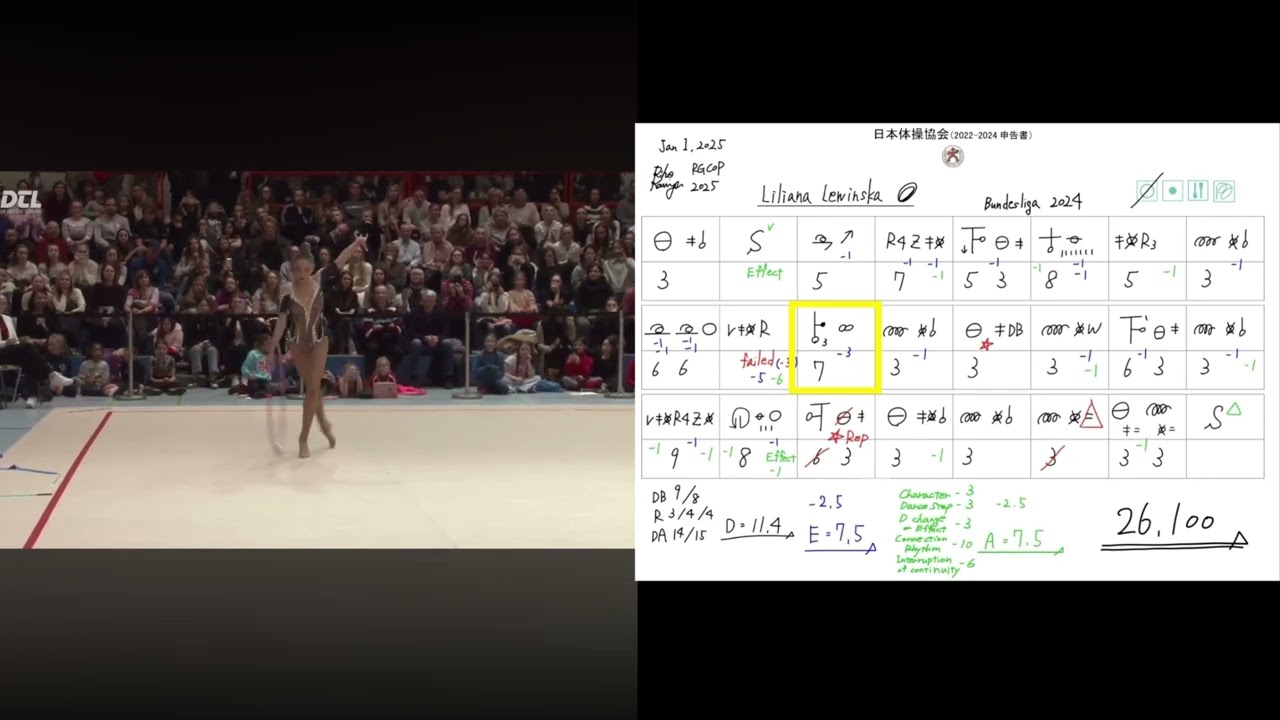 DTL
日本体操協会(2022-2024 申告書)
Jan 1, 2025
RGCOP
2025
Liliana Lewinska
Bundesliga 2024
-1
R4Z
-1 -1 -1
-1
-1 -1
R3
-1
-1
3
Effect
5
7
5 3
8
5
3
-1 -1
-1 -1
R
DB
W
6 6
failed (-3)
-5 -6
7
-3
3
-1
3
3
-1
-1
6 3
3
-1
-1
R4Z
-1
9
-1
-1
-1
8
-1
Effect
-1
Rep
6 3
3
-1
3
3
3 3
-1
DB 9/8
R 3/4/4
DA 14/15
D = 11.4
-2.5
E = 7.5
Character -3
Dance Step -3
D change -3
- Effect
Connection -10
Rhythm
Interruption -6
of continuity
-2.5
A = 7.5
26.100